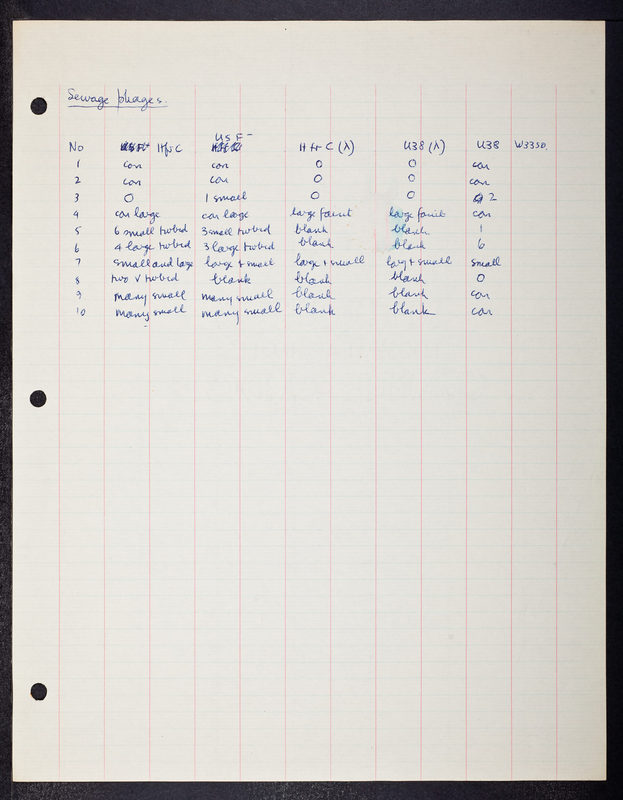 Sewage phages.
U5 F-
No HfrC Hfr C (λ) U38 (λ) U38 W3350.
1 con con 0 0 con
2 con con 0 0 con
3 0 1 small 0 0 2
4 con large con large large faint large faint con
5 6 small turbid 3 small turbid blank blank 1
6 4 large turbid 3 large turbid blank blank 6
7 small and large large + small large + small large + small small
8 two v turbid blank blank blank 0
9 many small many small blank blank con
10 many small many small blank blank con